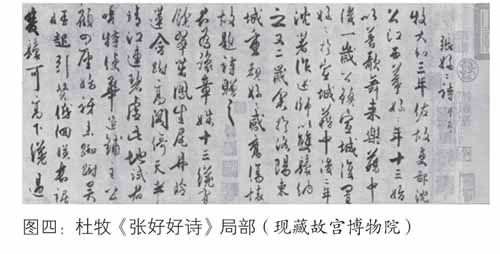 張好好詩并序
牧大和三年佐故吏部沈
公江西幕好好年十三始
以善歌舞來樂籍中
後一歲公鎮宣城復置
好好於宣城籍中後年
沈著作述師以雙鬟納
之又二歲余於洛陽東
城重覩好好感舊傷懷
故題詩贈之
君為豫章姝十三纔有
餘翠茁鳳生尾丹臉
蓮含跗高閣倚天半
晴江連碧虛此地試君
唱特使華筵鋪主公
顧四座始訝來踟躕吳
娃起引贊低佪映長裾
雙鬟可高下纔過
图四：杜牧《张好好诗》局部（现藏故宫博物院）